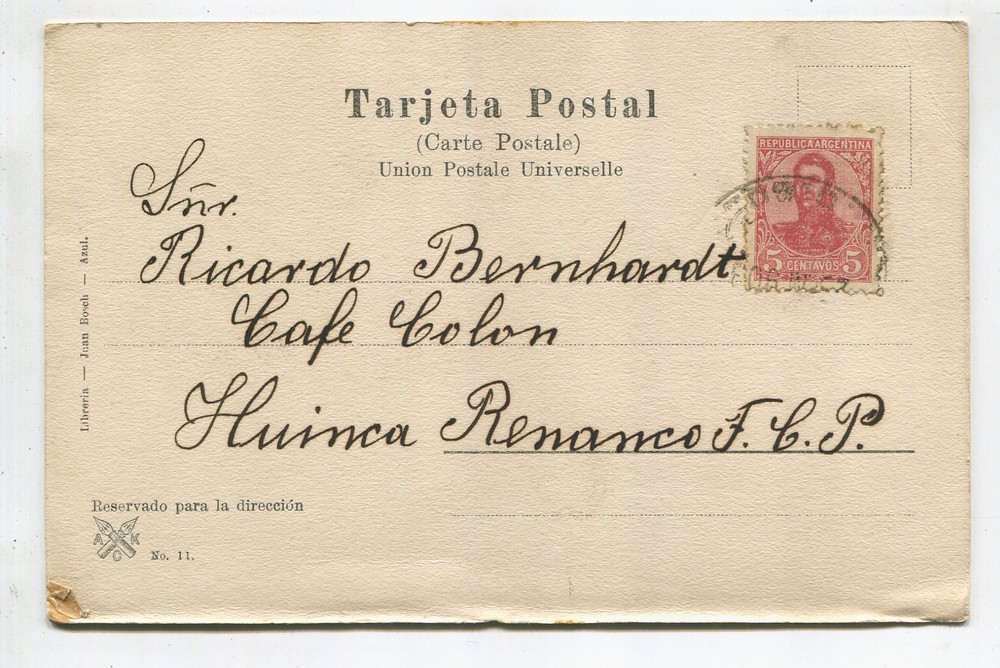 Tarjeta Postal
(Carte Postale)
Union Postale Universelle
REPUBLICA ARGENTINA
5 CENTAVOS 5
Sñr.
Ricardo Bernhardt
Cafe Colon
Huinca Renanco F. C. P.
Libreria — Juan Bosch — Azul.
Reservado para la dirección
A C K
No. 11.